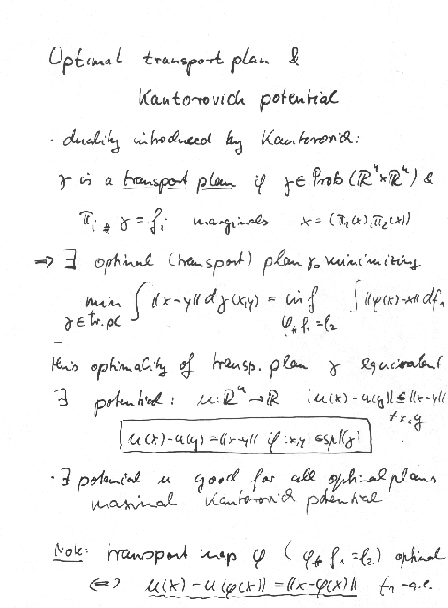 Optimal transport plan &
Kantorovich potential
· duality introduced by Kantorovich:
γ is a transport plan if γ ∈ Prob(ℝⁿ×ℝⁿ) &
π_{i#} γ = f_i marginals x = (π₁(x), π₂(x))
⇒ ∃ optimal (transport) plan γ₀ minimizing
min_{γ ∈ tr. pl} ∫ ‖x-y‖ dγ(x,y) = inf_{φ_# f₁ = f₂} ∫ ‖φ(x)-x‖ df₁
this optimality of transp. plan γ equivalent
∃ potential: u: ℝⁿ → ℝ |u(x) - u(y)| ≤ ‖x-y‖
∀ x, y
u(x) - u(y) = ‖x-y‖ if x,y ∈ spt(γ)
· ∃ potential u good for all optimal plans
maximal Kantorovich potential
Note: transport map φ (φ_# f₁ = f₂) optimal
⇔ u(x) - u(φ(x)) = ‖x-φ(x)‖ f₁-a.e.